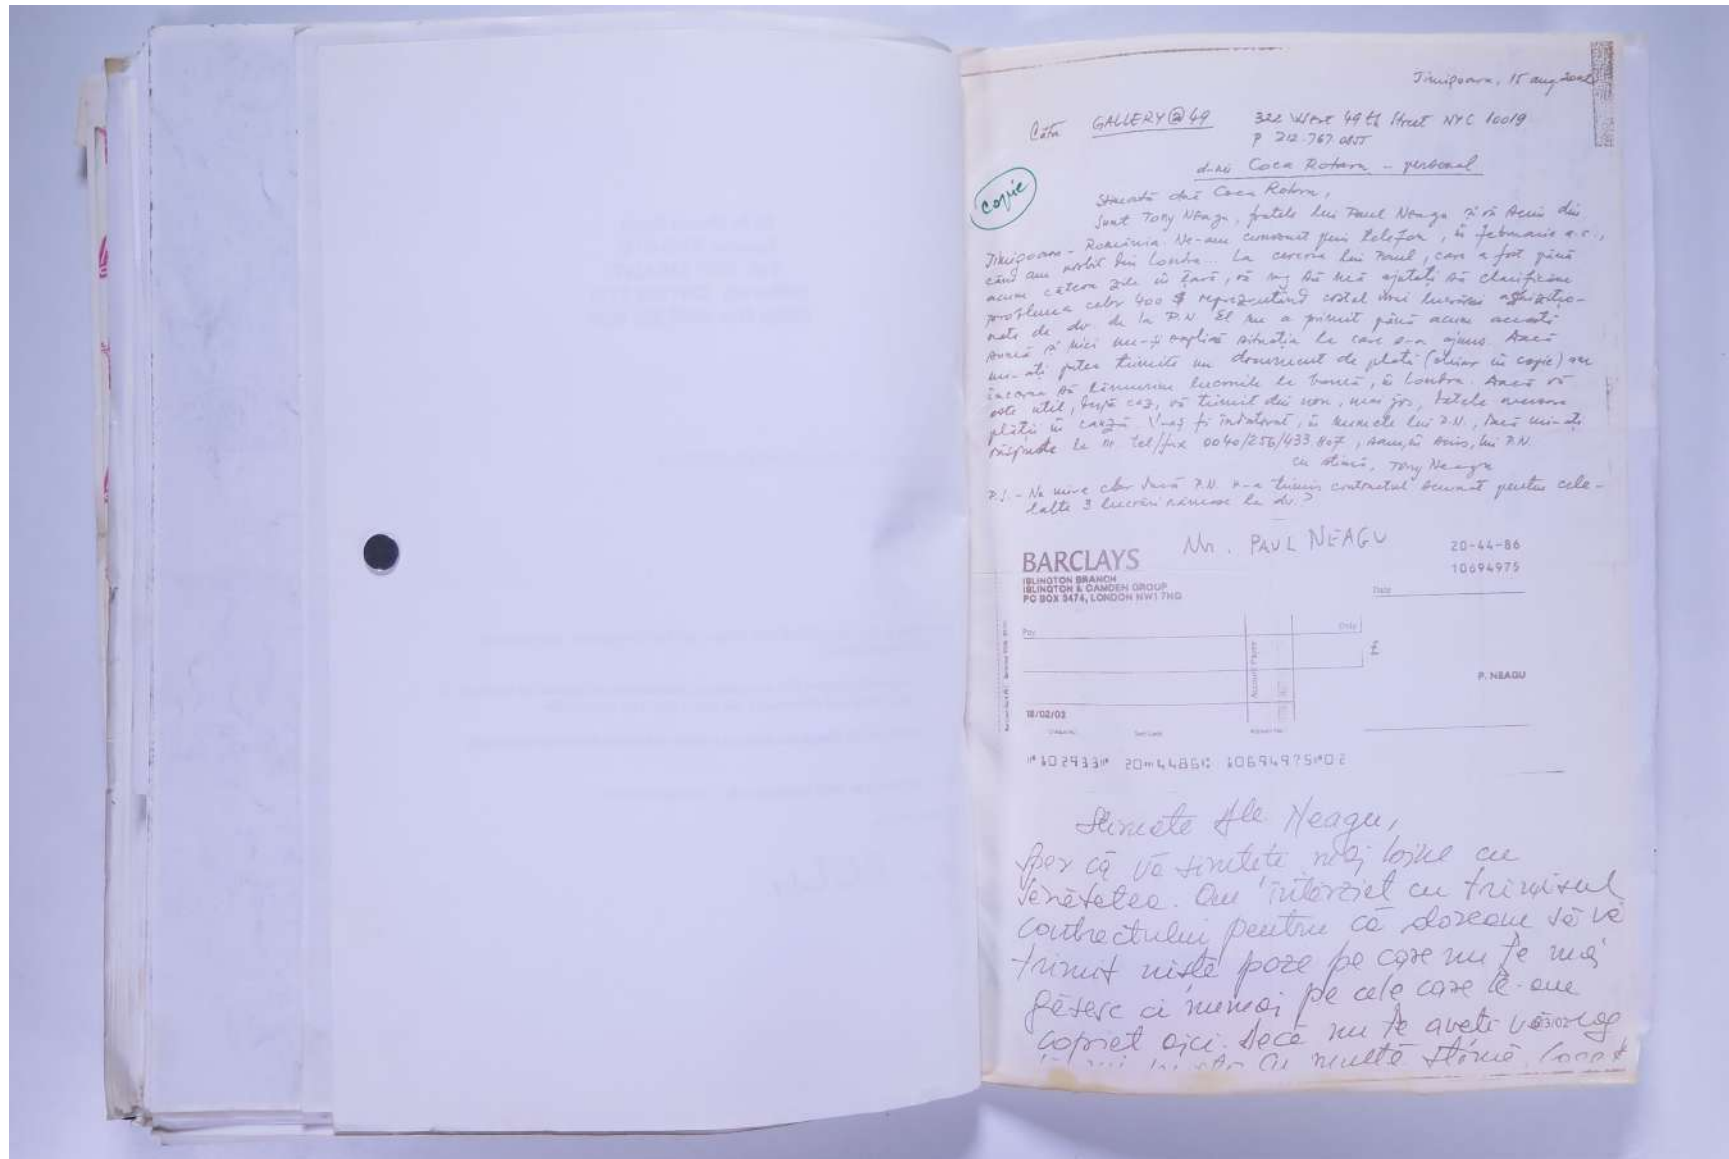 Timișoara, 15 aug 2002
Către GALLERY@49 322 West 49th Street NYC 10019
P 212.767.0855
d-nei Coca Rotaru - personal
copie
Stimată dnă Coca Rotaru,
Sunt Tony Neagu, fratele lui Paul Neagu și vă scriu din
Timișoara - România. Ne-am cunoscut prin telefon, în februarie a.c.,
când am vorbit din Londra... La cererea lui Paul, care a fost până
acum câteva zile în țară, vă rog să mă ajutați să clarificăm
problema celor 400 $ reprezentând costul unei lucrări achizițio-
nate de dv. de la P.N. El nu a primit până acum această
sumă și nici nu-și explică situația la care s-a ajuns. Dacă
ne-ați putea trimite un document de plată (chiar în copie) am
încerca să lămurim lucrurile la bancă, în Londra. Dacă vă
este util, după caz, vă trimit din nou, mai jos, datele necesare
plății în cauză. V-aș fi îndatorat, în numele lui P.N., dacă mi-ați
răspunde la nr. tel/fax 0040/256/433.807, sau, în scris, lui P.N.
cu stimă, Tony Neagu
P.S. - Nu mi-e clar dacă P.N. v-a trimis contractul semnat pentru cele-
lalte 3 lucrări rămase la dv.?
Mr. PAUL NEAGU
BARCLAYS
20-44-86
10694975
ISLINGTON BRANCH
ISLINGTON & CAMDEN GROUP
PO BOX 3474, LONDON NW1 7NQ
Date
Pay
Only
£
Account Payee
P. NEAGU
18/02/02
102933 20 4486 10694975 02
Stimate Dle Neagu,
Sper că vă simțiți mai bine cu
sănătatea. Am întârziat cu trimisul
contractului pentru că doream să vă
trimit niște poze pe care nu le mai
găsesc ci numai pe cele care le-am
copiat aici. Dacă nu le aveți vă rog
cu multă stimă, Coca